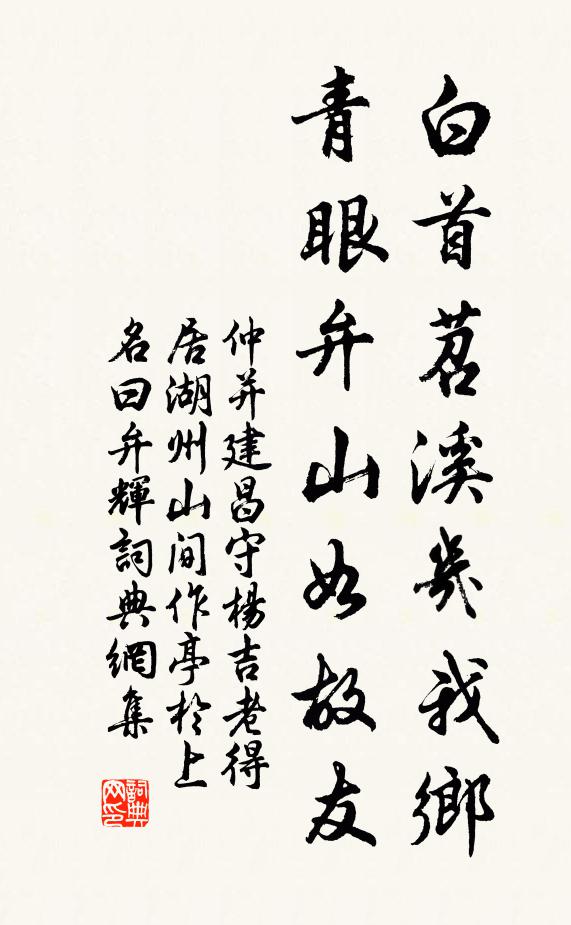 白首苕溪幾我鄉
青眼弁山如故友
仲并建昌守楊吉老得
居湖州山間作亭於上
名曰弁輝詞典網集
詞典网印